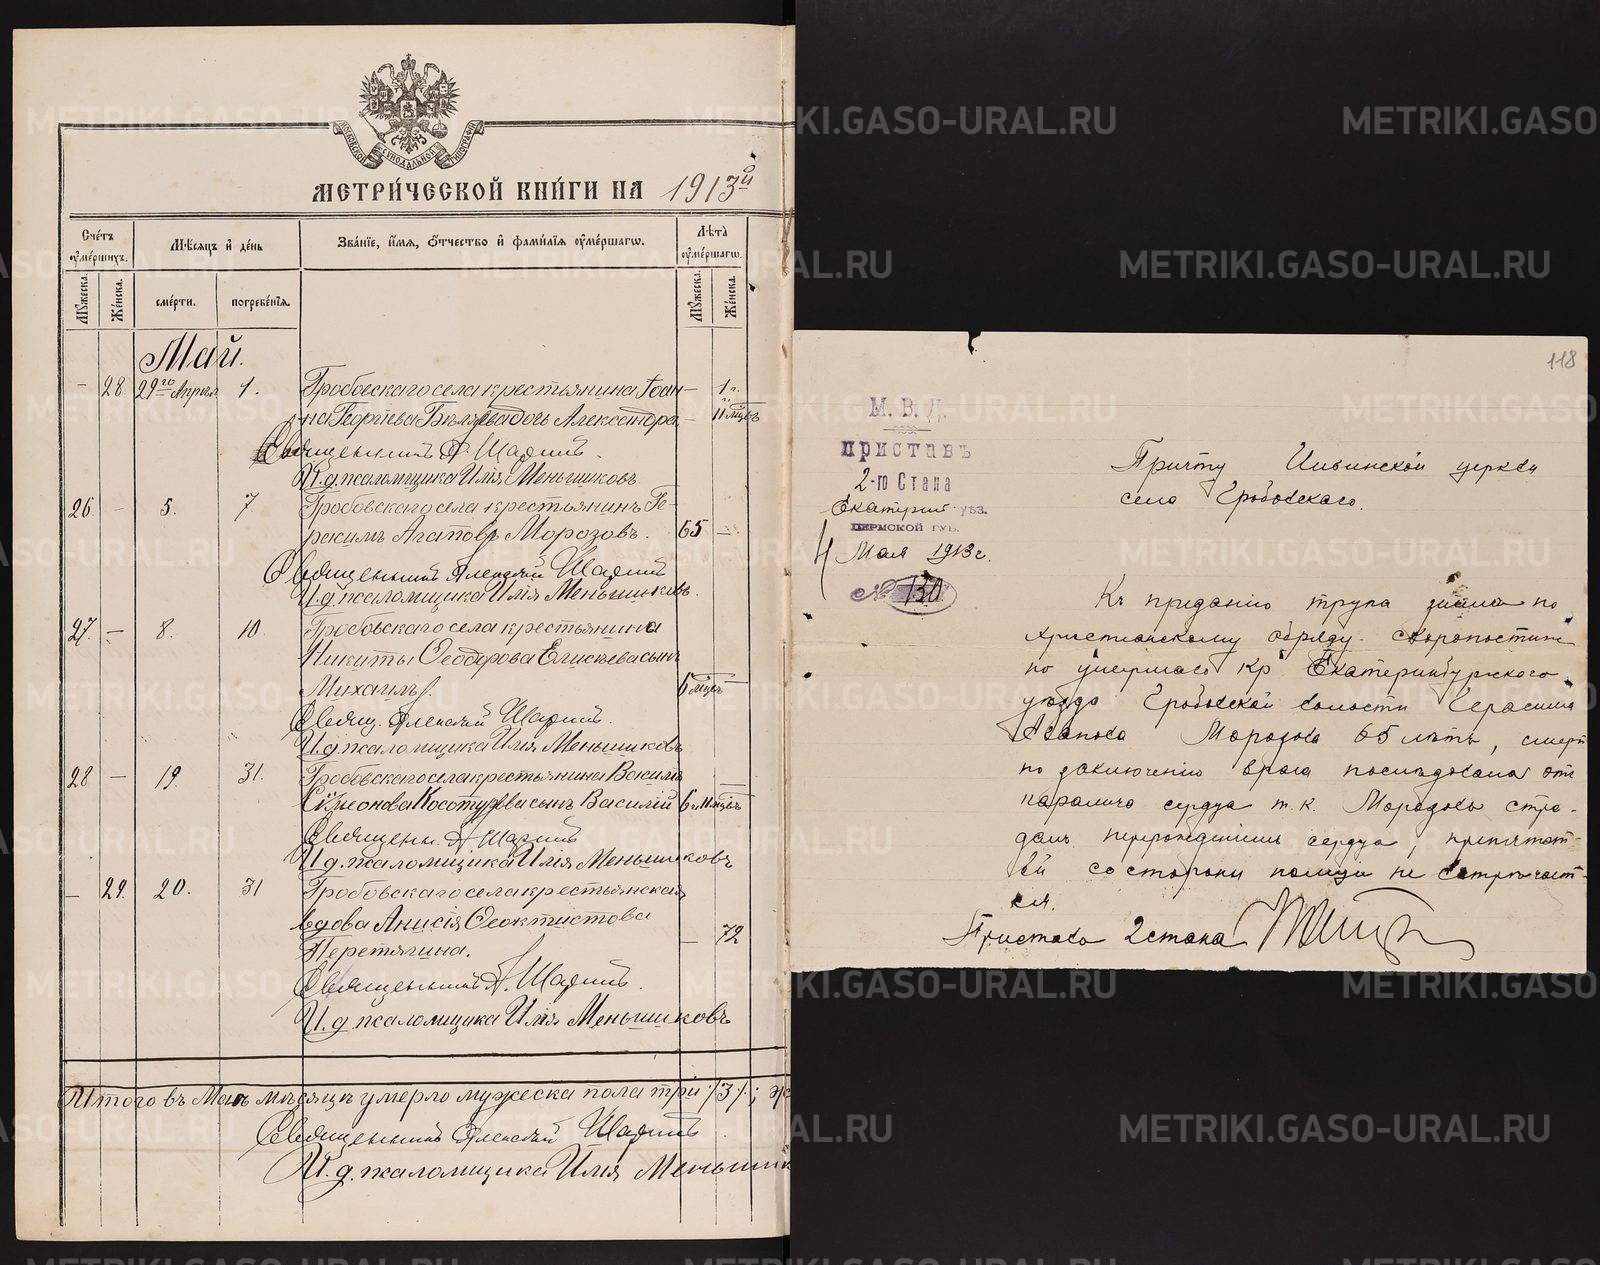 МОСКОВСКОЙ СѴНОДАЛЬНОЙ ТИПОГРАФІИ
МЕТРИ́ЧЕСКОЙ КНИ́ГИ НА 1913й
Сче́тъ ᲂу҆ме́ршихъ.
Мѣ́сяцъ и҆ де́нь
Зва́нїе, и҆́мя, ѻ҆́тчество и҆ фами́лїя ᲂу҆ме́ршагѡ.
Лѣ́та ᲂу҆ме́ршагѡ.
Мꙋ́жеска. Же́нска. сме́рти. погребе́нїя. Мꙋ́жеска. Же́нска.
Май.
– 28 29го Апрѣля 1. Гробовскаго села крестьянина Іоан– – 1 г.
на Георгіева Бѣляева дочь Александра. – 11 мѣцъ
Священникъ А. Шаринъ.
И. д. псаломщика Илія Меньшиковъ.
26. – 5. 7 Гробовскаго села крестьянинъ Ге-
расимъ Агаповъ Морозовъ. 65 –
Священникъ Алексѣй Шаринъ
И. д. псаломщика Илія Меньшиковъ.
27. – 8. 10 Гробовскаго села крестьянина
Никиты Ѳеодорова Елисѣева сынъ
Михаилъ. 6 мѣцъ
Свящ. Алексѣй Шаринъ.
И. д. псаломщика Илія Меньшиковъ
28 – 19 31. Гробовскаго села крестьянина Василія
Сѵмеонова Косотурова сынъ Василій 6 и 11 мѣцъ –
Священн. А. Шаринъ
И. д. псаломщика Илія Меньшиковъ
– 29. 20. 31 Гробовскаго села крестьянская
вдова Анисія Ѳеоктистова
Перетягина. – 72
Священникъ А. Шаринъ.
И. д. псаломщика Илія Меньшиковъ
Итого въ Маѣ мѣсяцѣ умерло мужеска пола три /3/;
Священникъ Алексѣй Шаринъ
И. д. псаломщика Илія Меньшик
118
М. В. Д.
приставъ
2-го Стана
Екатерин. уѣз.
ПЕРМСКОЙ ГУБ.
4 Мая 1913 г.
№ 130
Причту Ильинской церкви
села Гробовскаго.
Къ преданію трупа землѣ по
христіанскому обряду скоропостиж-
но умершаго кр Екатеринбургскаго
уѣзда Гробовской волости Герасима
Агапова Морозова 65 лѣтъ, смерть
по заключенію врача послѣдовала отъ
паралича сердца т. к. Морозовъ стра-
далъ перерожденіемъ сердца, препятст-
вій со стороны полиціи не встрѣчает-
ся.
Пристава 2 стана
METRIKI.GASO-URAL.RU